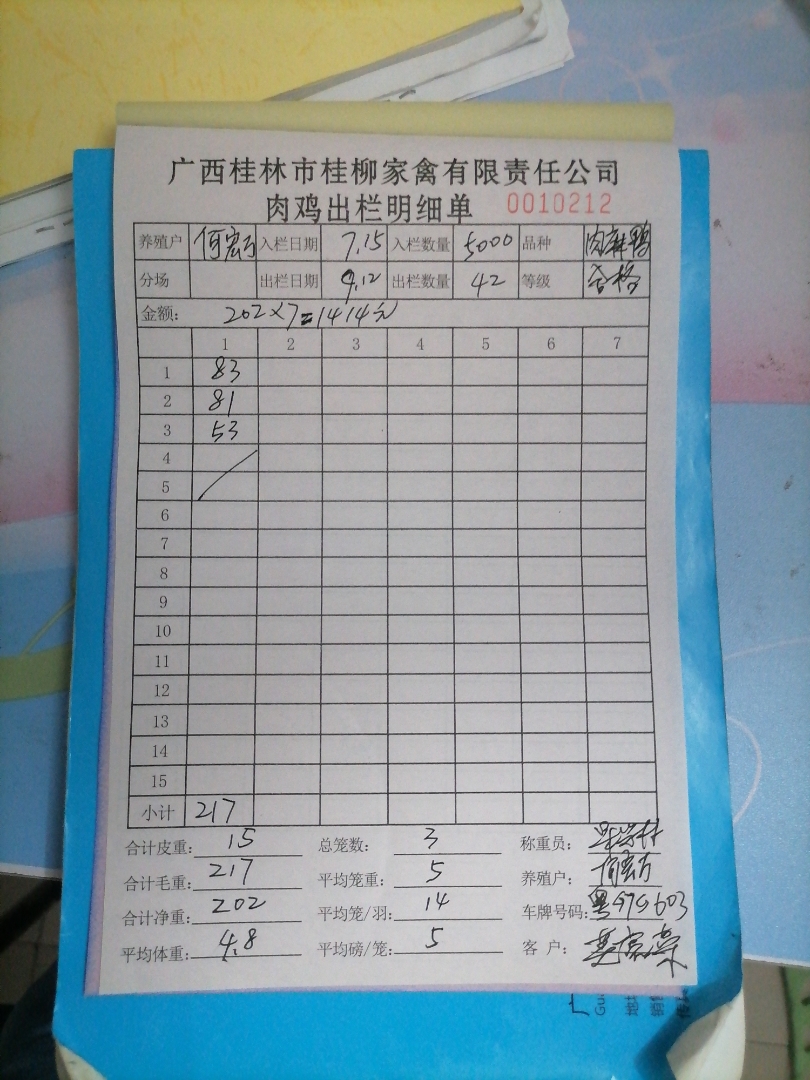 广西桂林市桂柳家禽有限责任公司
肉鸡出栏明细单 0010212
养殖户 何宏万 入栏日期 7.15 入栏数量 5000 品种 肉麻鸭
分场 出栏日期 9.12 出栏数量 42 等级 合格
金额: 202×7=1414元
1 2 3 4 5 6 7
1 83
2 81
3 53
4
5
6
7
8
9
10
11
12
13
14
15
小计 217
合计皮重: 15 总笼数: 3 称重员:
合计毛重: 217 平均笼重: 5 养殖户: 何宏万
合计净重: 202 平均笼/羽: 14 车牌号码:
平均体重: 4.8 平均磅/笼: 5 客 户: